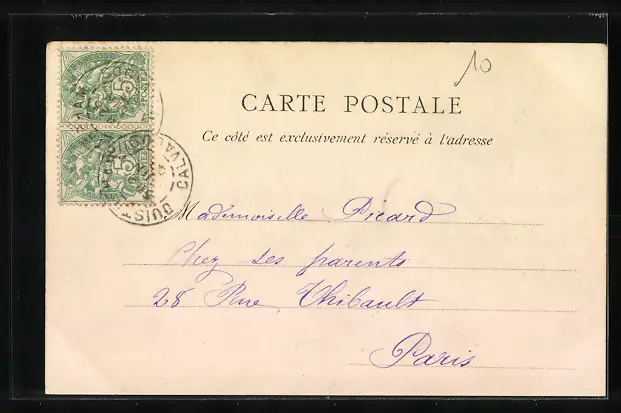 10
CARTE POSTALE
Ce côté est exclusivement réservé à l'adresse
5
5
CALVADOS
OUIST
Mademoiselle Picard
Chez ses parents
28 Rue Thibault
Paris